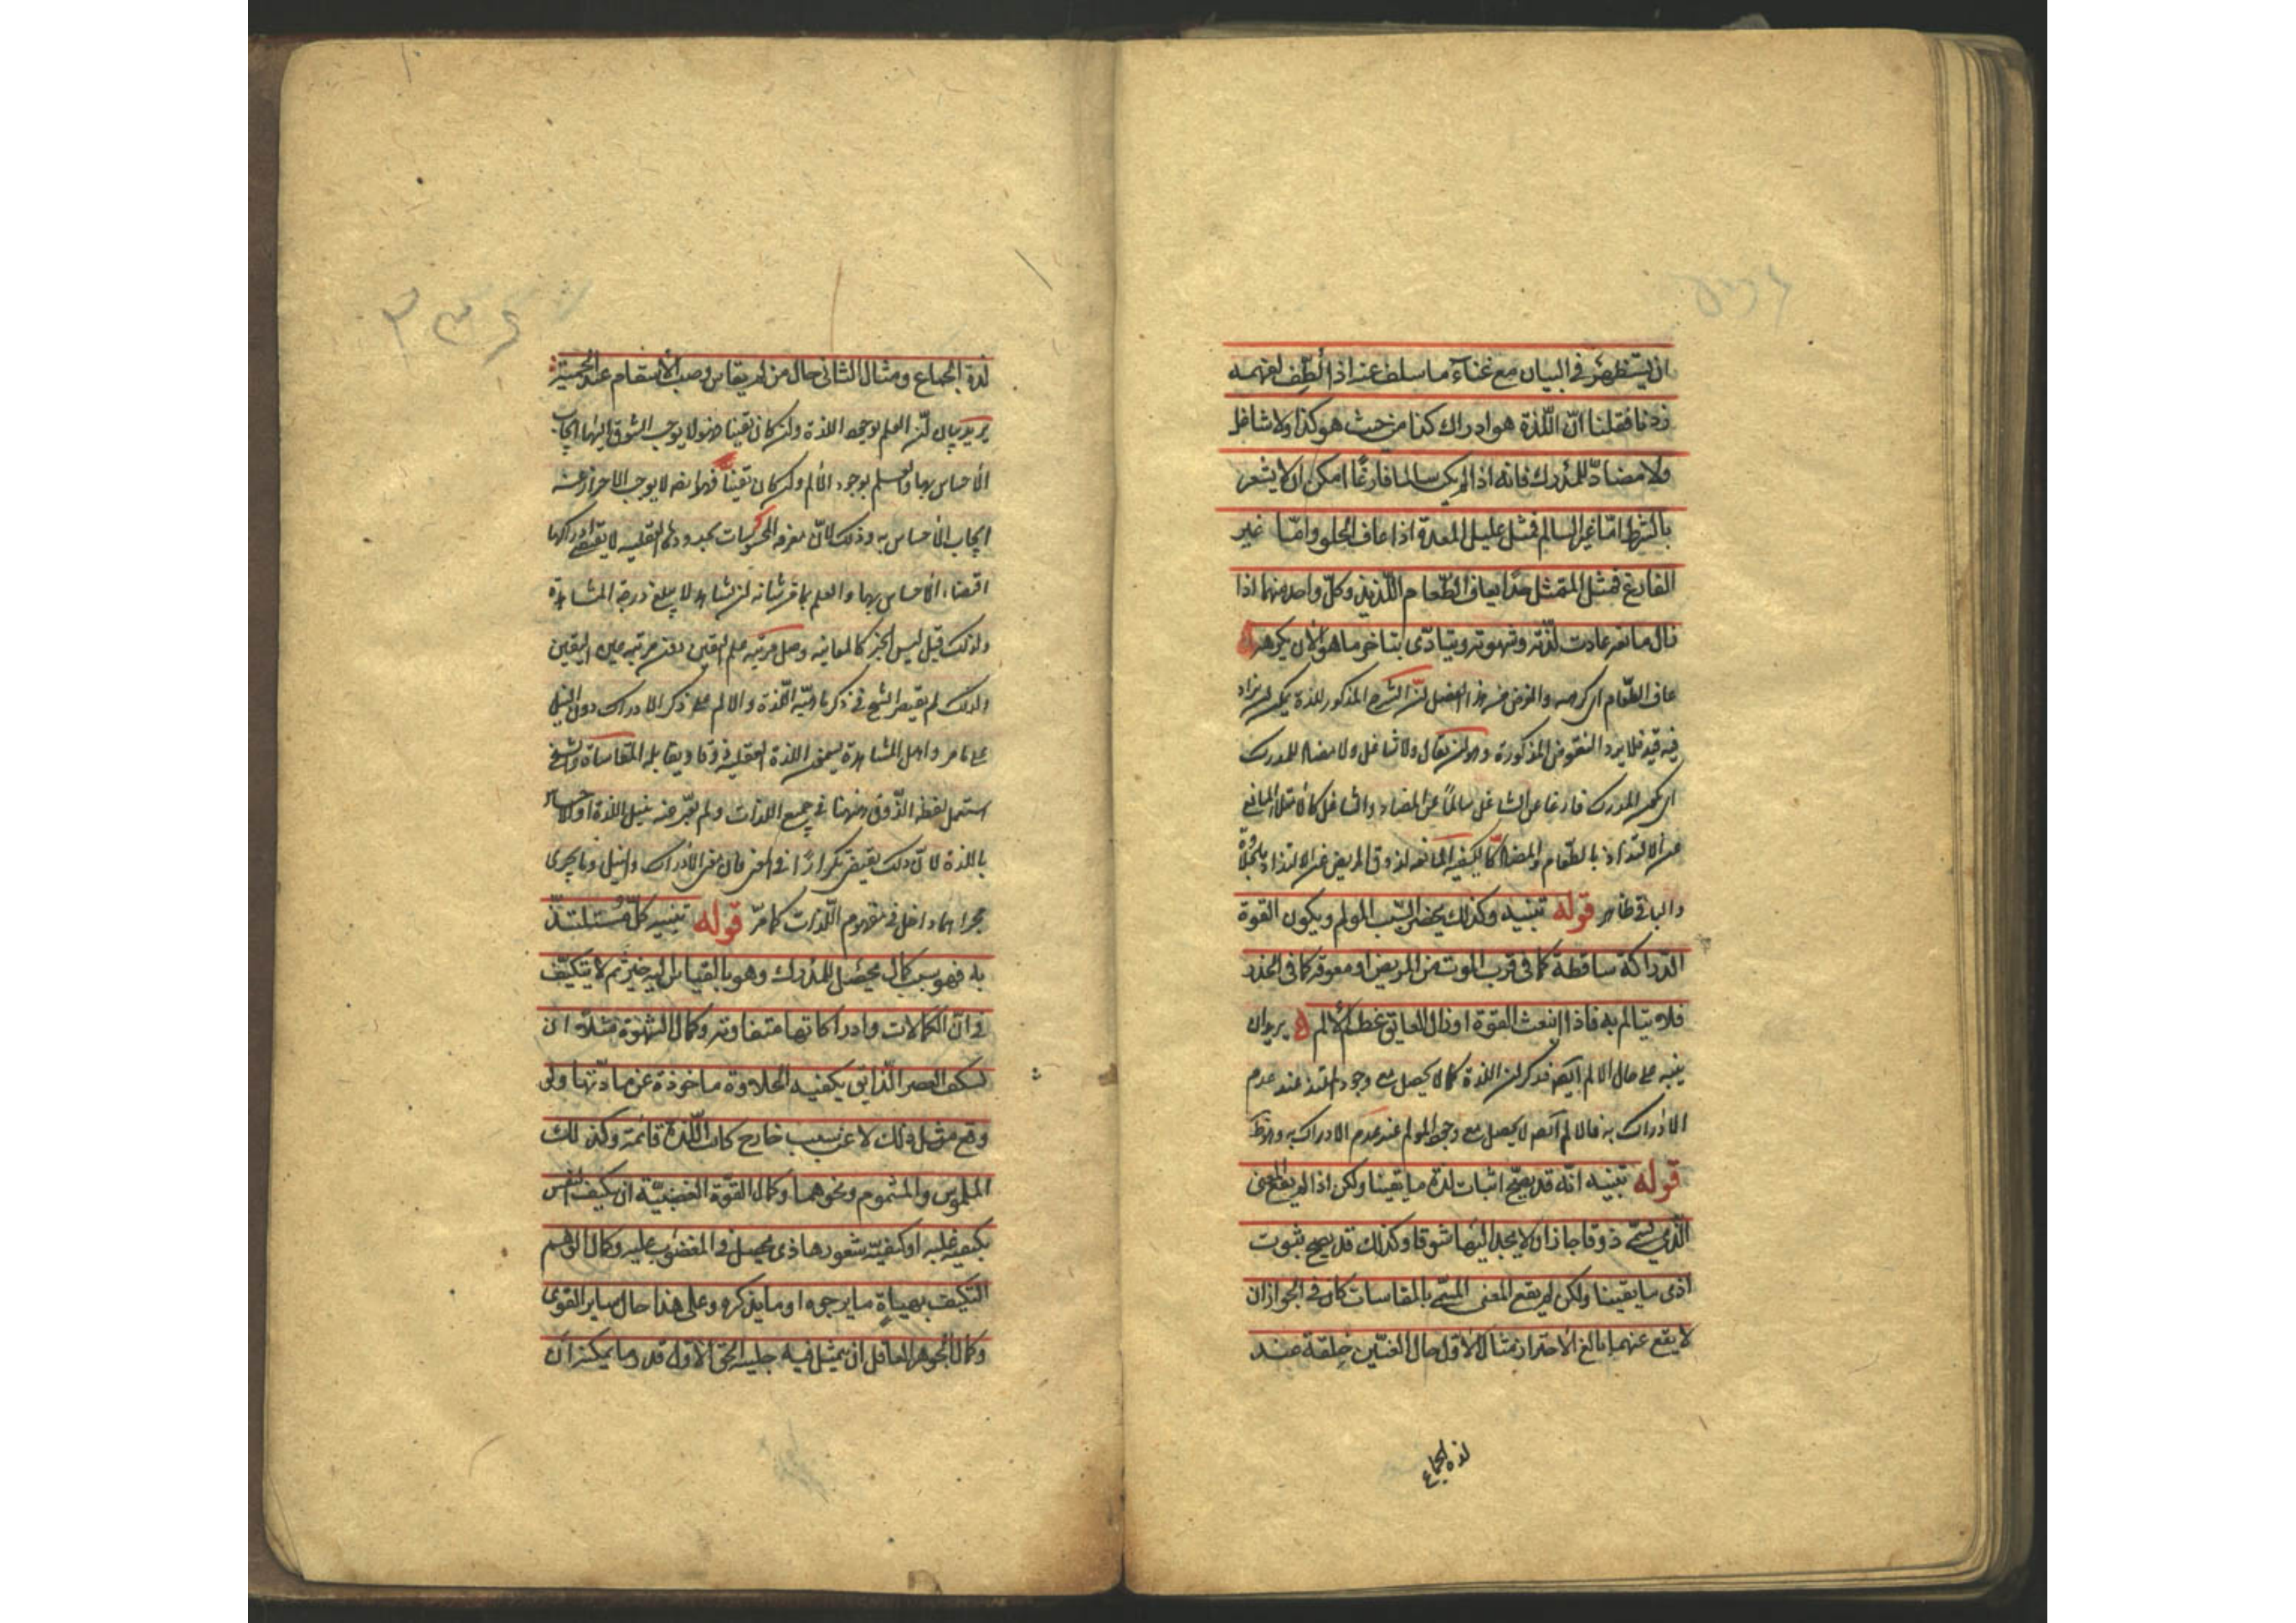 ان يستظهر في البيان مع غناء ما سلف عنه اذا لطف لفهمه
زدنا فقلنا ان اللذة هو ادراك كذا من حيث هو كذا ولا شاغل
ولا مضاد للمدرك فانه اذا لم يكن سالما فارغا امكن ان لا يشعر
بالشرط اما غير السالم فمثل عليل المعدة اذا عاف الحلو واما غير
الفارغ فمثل الممتلئ جدا يعاف الطعام اللذيذ وكل واحد منهما اذا
زال مانعه عادت لذته وشهوته ويتاذى بتاخر ما هو الان يكرهه
عاف الطعام اى كرهه والغرض من هذا الفصل ان الشرح المذكور للذة يمكن ان يزاد
فيه قيد فلا يرد النقوض المذكورة وهو ان يقال ولا شاغل ولا مضاد للمدرك
اى يكون المدرك فارغا عن الشاغل سالما عن المضاد والشاغل كالامتلاء المانع
عن الالتذاذ بالطعام والمضاد كالكيفية المانعة لذوق المريض عن الالتذاذ بالحلاوة
والباقي ظاهر قوله تنبيه وكذلك يحضر السبب المولم ويكون القوة
الدراكة ساقطة كما في قرب الموت من المريض او معوقة كما في الخدر
فلا يتالم به فاذا انبعث القوة او زال العايق عظم الالم يريد ان
ينبه على حال الالم ايضه فذكر ان اللذة كما لا يحصل مع وجود الملتذ عند عدم
الادراك به فالالم ايضه لا يحصل مع وجود المولم عند عدم الادراك به وهو ظ
قوله تنبيه انه قد يصح اثبات لذة ما يقينا ولكن اذا لم يقع المعنى
الذى يسمى ذوقا جاز ان لا يجد اليها شوقا وكذلك قد يصح ثبوت
اذى ما يقينا ولكن لم يقع المعنى المسمى بالمقاسات كان في الجواز ان
لا يقع عنهما بالغ الاحتراز مثال الاول حال العنين خلقة عند
لذة الجماع
لذة الجماع ومثال الثانى حال من لم يقاس وصب الاسقام عند الحمية
يريد بيان ان العلم بوجود اللذة وان كان يقينا فهو لا يوجب الشوق اليها ايجاب
الاحساس بها والعلم بوجود الالم وان كان يقينا فهو ايضه لا يوجب الاحتراز عنه
ايجاب الاحساس به وذلك لان معرفة المحسوسات بحدودها العقلية لا يقتضى ادراكها
اقتضاء الاحساس بها والعلم بما من شانه ان يشاهد لا يبلغ درجة المشاهدة
ولذلك قيل ليس الخبر كالمعاينة وجعل مرتبة علم اليقين دون مرتبة عين اليقين
ولذلك لم يقتصر الشيخ في ذكر ماهية اللذة والالم على ذكر الادراك دون النيل
على ما مر واهل المشاهدة يسمون اللذة العقلية ذوقا ويقابله المقاساة والشيخ
استعمل لفظة الذوق ههنا في جميع اللذات ولم يعبر عنه بنيل اللذة او الاحساس
باللذة لان ذلك يقتضى تكرارا في المعنى فان معنى الادراك والنيل وما يجرى
مجراهما داخل في مفهوم اللذات كما مر قوله تنبيه كل مستلذ
به فهو سبب كمال يحصل للمدرك وهو بالقياس اليه خير ثم لا يتكيف
في ان الكمالات وادراكاتها متفاوتة وكمال الشهوة مثلا ان
يتكيف العضو الذائق بكيفية الحلاوة ماخوذة عن مادتها ولو
وقع مثل ذلك لا عن سبب خارج كانت اللذة قائمة وكذلك
الملموس والمشموم ونحوهما وكمال القوة الغضبية ان يتكيف النفس
بكيفية غلبة او كيفية شعور ها ذى يحصل في المغضوب عليه وكمال الوهم
التكيف بهياة ما يرجوه او ما يذكره وعلى هذا حال ساير القوى
وكمال الجوهر العاقل ان يتمثل فيه جلية الحق الاول قدر ما يمكنه ان